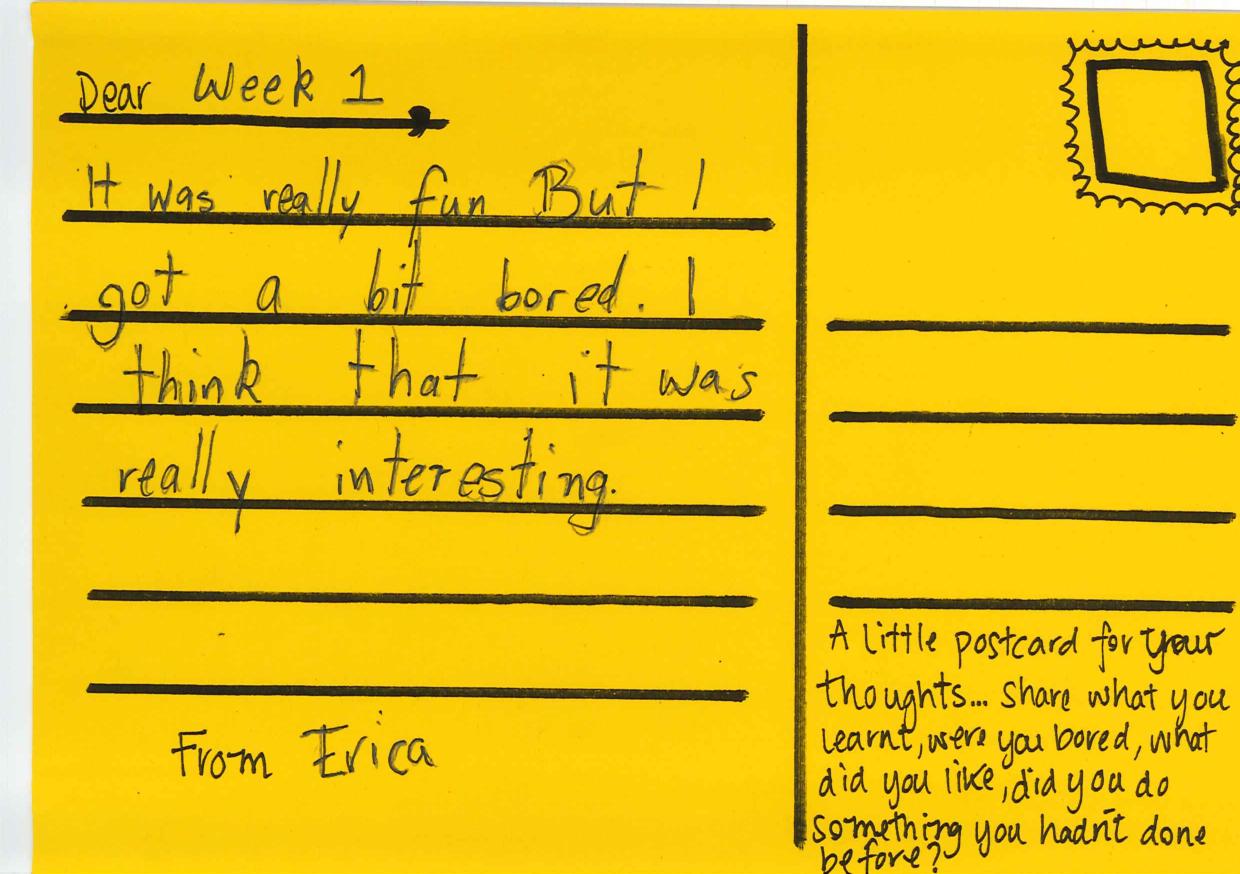 Dear Week 1,
It was really fun But I
got a bit bored. I
think that it was
really interesting.
From Erica
A little postcard for your
thoughts... Share what you
learnt, were you bored, what
did you like, did you do
something you hadn't done
before?